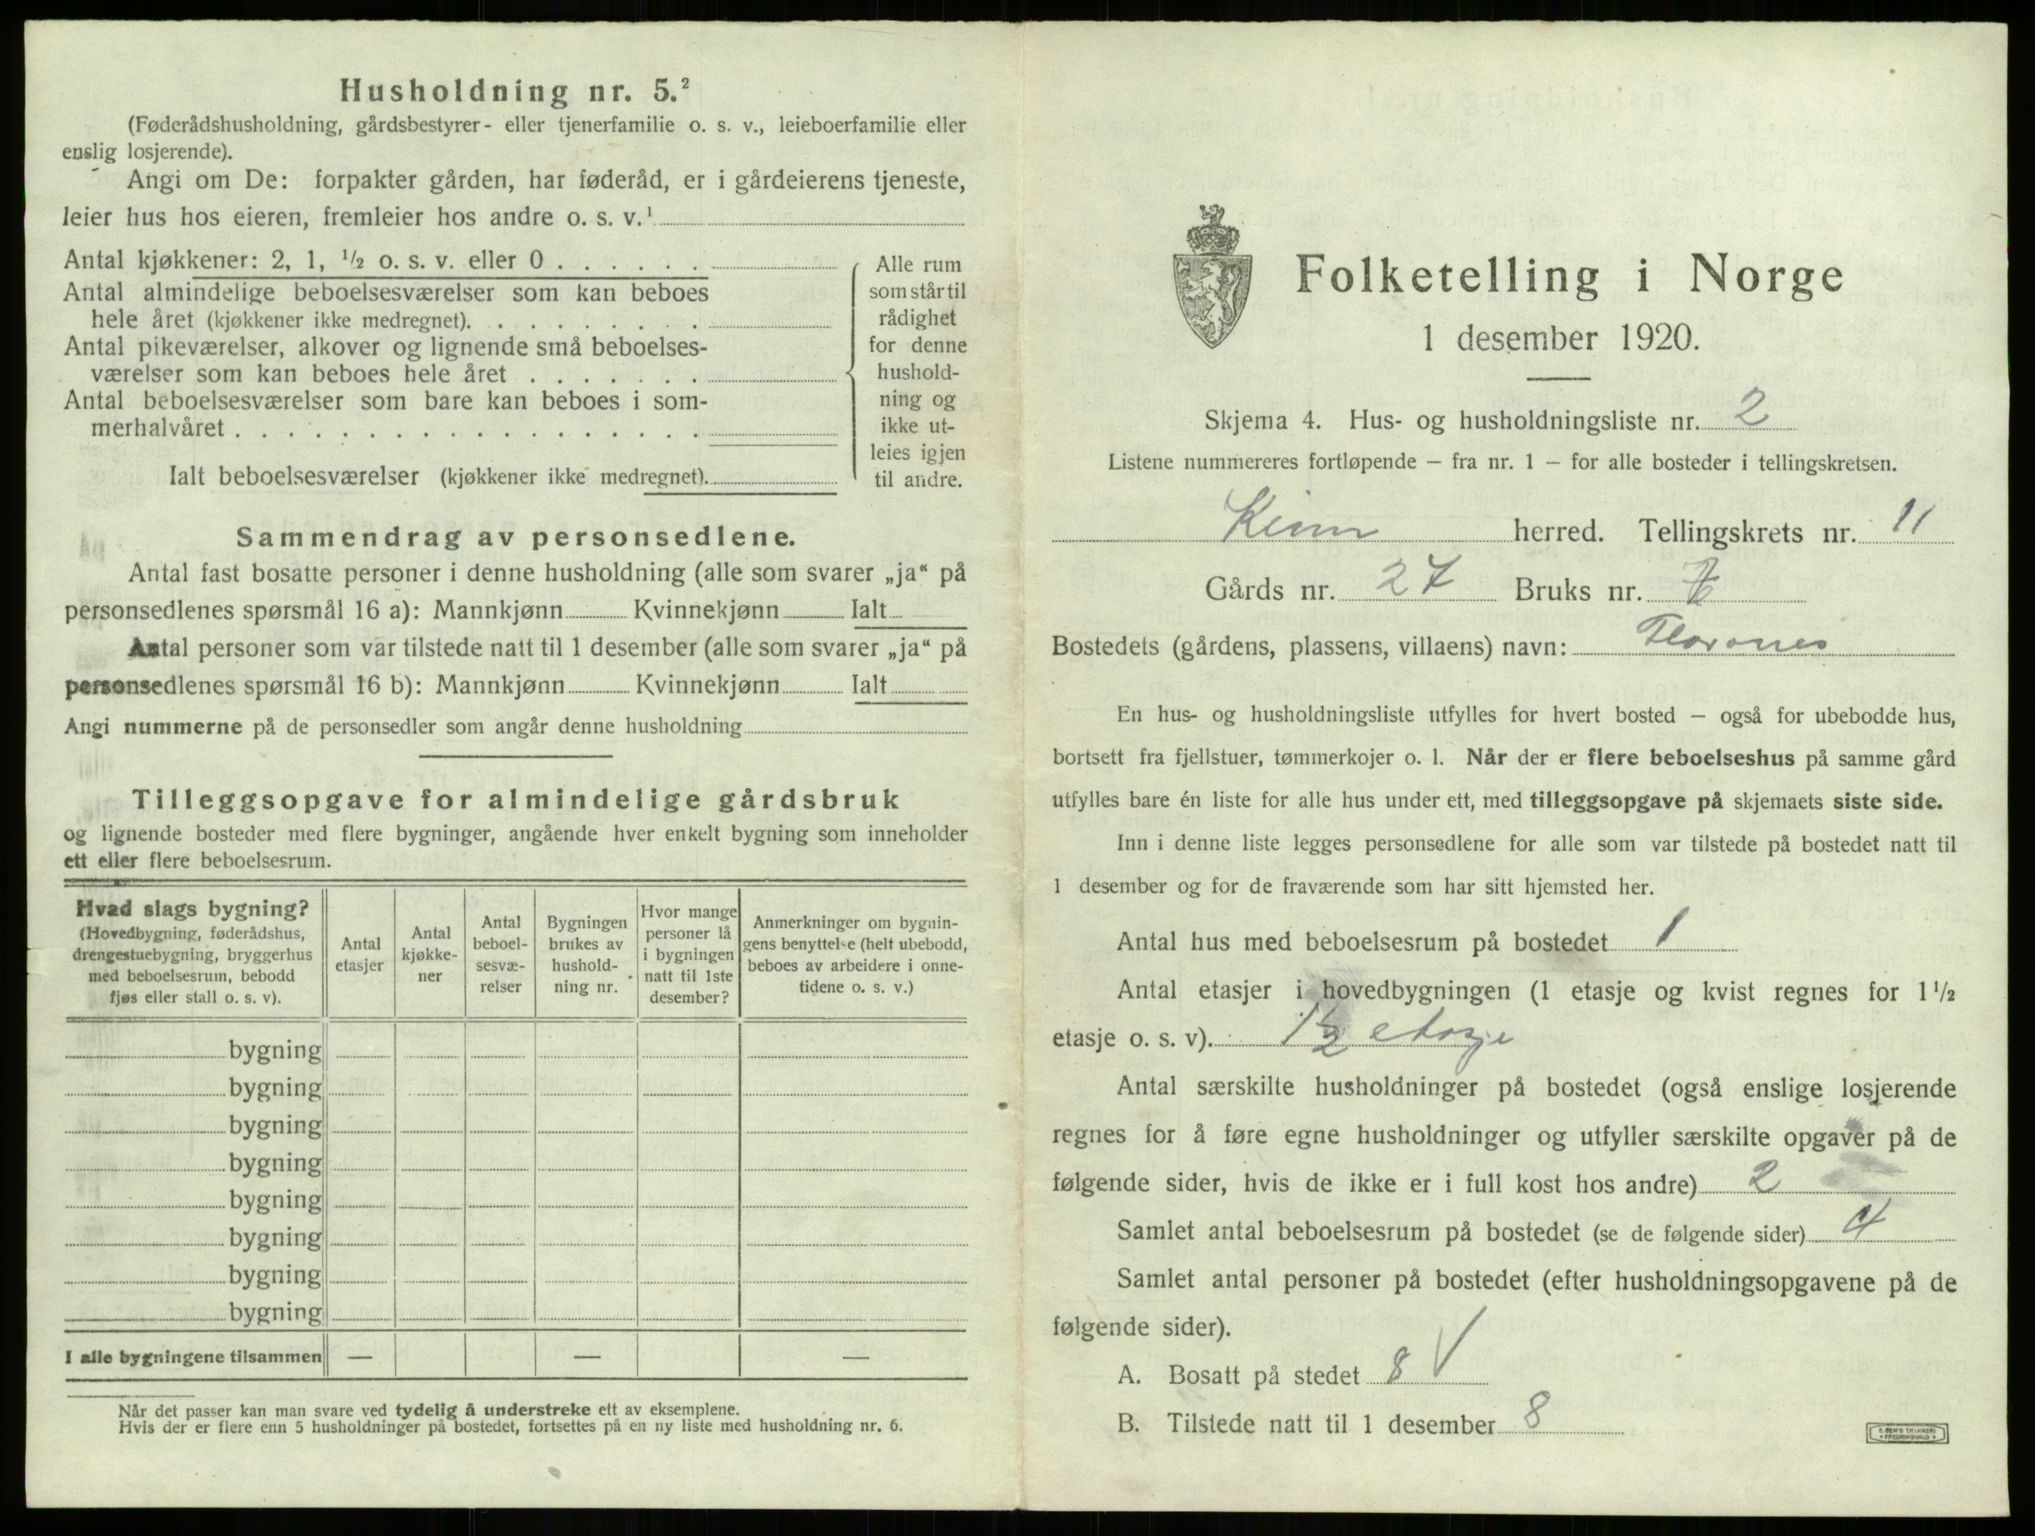 Husholdning nr. 5.²
(Føderådshusholdning, gårdsbestyrer- eller tjenerfamilie o. s. v., leieboerfamilie eller
enslig losjerende).
Angi om De: forpakter gården, har føderåd, er i gårdeierens tjeneste,
leier hus hos eieren, fremleier hos andre o. s. v.¹
Antal kjøkkener: 2, 1, ½ o. s. v. eller 0 . . . . . .
Antal almindelige beboelsesværelser som kan beboes
hele året (kjøkkener ikke medregnet). . . . . . . . .
Antal pikeværelser, alkover og lignende små beboelses-
værelser som kan beboes hele året . . . . . . .
Antal beboelsesværelser som bare kan beboes i som-
merhalvåret . . . . . . . . . . . . . . . . . .
Ialt beboelsesværelser (kjøkkener ikke medregnet).
Alle rum
som står til
rådighet
for denne
hushold-
ning og
ikke ut-
leies igjen
til andre.
Sammendrag av personsedlene.
Antal fast bosatte personer i denne husholdning (alle som svarer „ja“ på
personsedlenes spørsmål 16 a): Mannkjønn Kvinnekjønn Ialt
Antal personer som var tilstede natt til 1 desember (alle som svarer „ja“ på
personsedlenes spørsmål 16 b): Mannkjønn Kvinnekjønn Ialt
Angi nummerne på de personsedler som angår denne husholdning
Tilleggsopgave for almindelige gårdsbruk
og lignende bosteder med flere bygninger, angående hver enkelt bygning som inneholder
ett eller flere beboelsesrum.
Hvad slags bygning?
(Hovedbygning, føderådshus,
drengestuebygning, bryggerhus
med beboelsesrum, bebodd
fjøs eller stall o. s. v).
Antal
etasjer
Antal
kjøkke-
ner
Antal
beboel-
sesvæ-
relser
Bygningen
brukes av
hushold-
ning nr.
Hvor mange
personer lå
i bygningen
natt til 1ste
desember?
Anmerkninger om bygnin-
gens benyttelse (helt ubebodd,
beboes av arbeidere i onne-
tidene o. s. v.)
bygning
bygning
bygning
bygning
bygning
bygning
bygning
bygning
I alle bygningene tilsammen — — —
Når det passer kan man svare ved tydelig å understreke ett av eksemplene.
Hvis der er flere enn 5 husholdninger på bostedet, fortsettes på en ny liste med husholdning nr. 6.
Folketelling i Norge
1 desember 1920.
Skjema 4. Hus- og husholdningsliste nr. 2
Listene nummereres fortløpende – fra nr. 1 – for alle bosteder i tellingskretsen.
Kinn herred. Tellingskrets nr. 11
Gårds nr. 27 Bruks nr.
Bostedets (gårdens, plassens, villaens) navn: Florones
En hus- og husholdningsliste utfylles for hvert bosted – også for ubebodde hus,
bortsett fra fjellstuer, tømmerkojer o. l. Når der er flere beboelseshus på samme gård
utfylles bare én liste for alle hus under ett, med tilleggsopgave på skjemaets siste side.
Inn i denne liste legges personsedlene for alle som var tilstede på bostedet natt til
1 desember og for de fraværende som har sitt hjemsted her.
Antal hus med beboelsesrum på bostedet 1
Antal etasjer i hovedbygningen (1 etasje og kvist regnes for 1½
etasje o. s. v). 1½ etasje
Antal særskilte husholdninger på bostedet (også enslige losjerende
regnes for å føre egne husholdninger og utfyller særskilte opgaver på de
følgende sider, hvis de ikke er i full kost hos andre) 2
Samlet antal beboelsesrum på bostedet (se de følgende sider) 4
Samlet antal personer på bostedet (efter husholdningsopgavene på de
følgende sider).
A. Bosatt på stedet 8 √
B. Tilstede natt til 1 desember 8